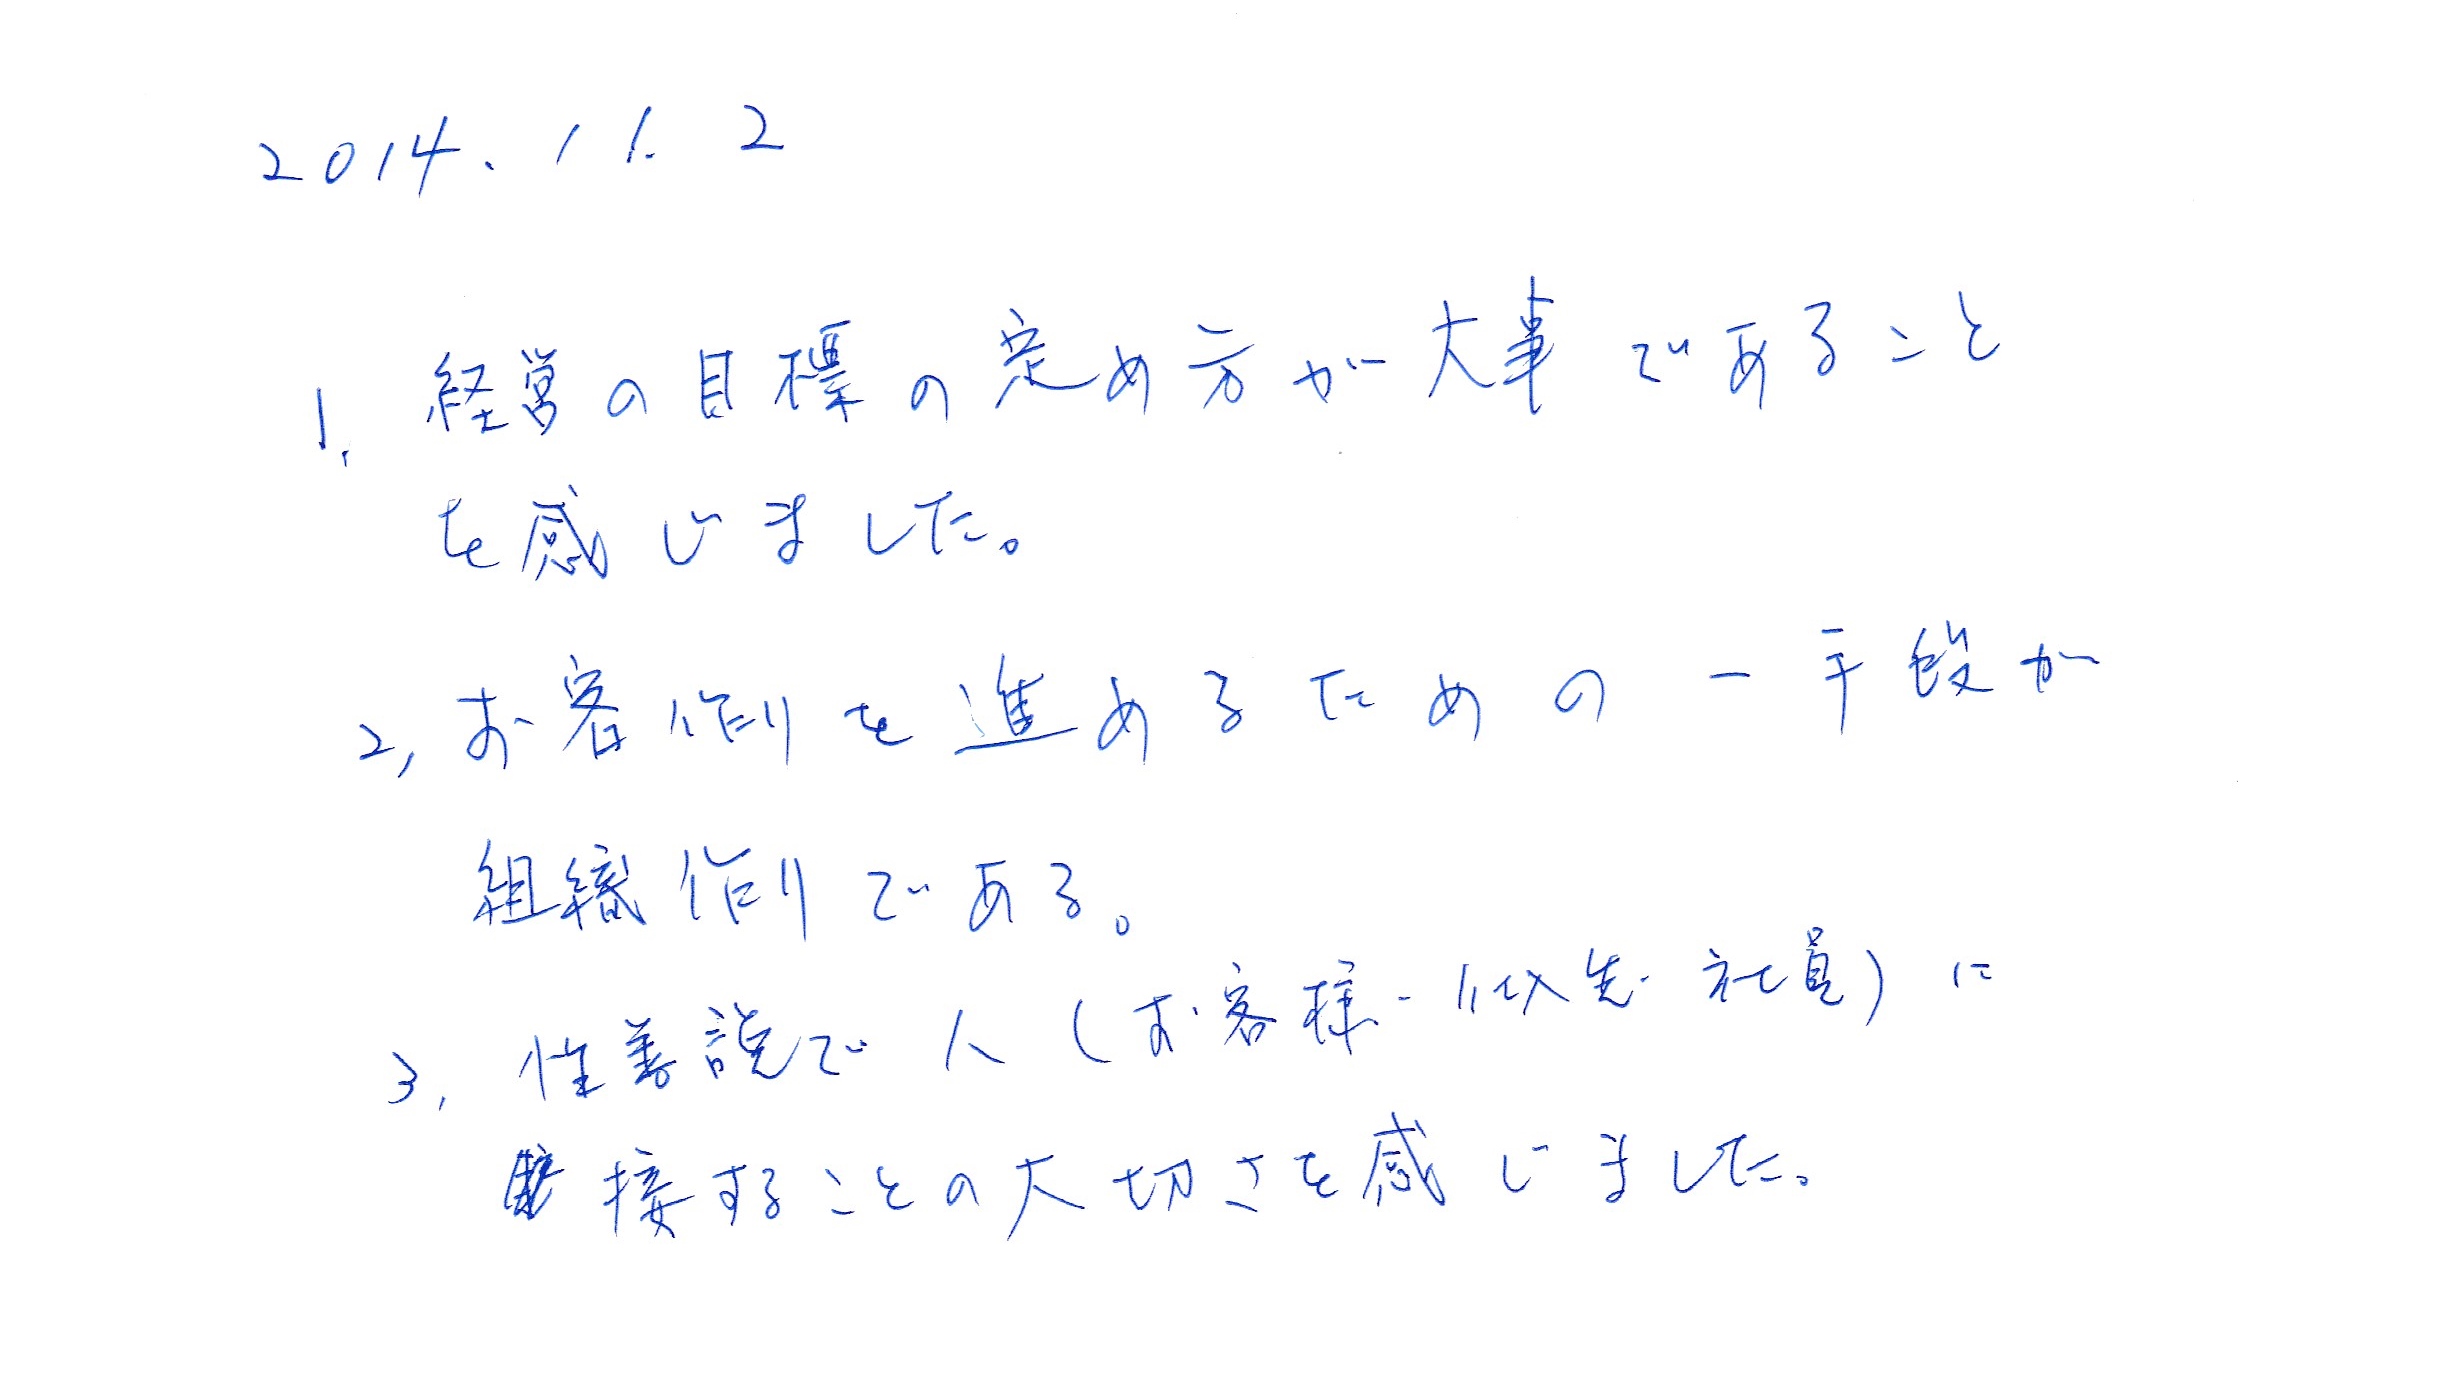 2014.11.2
1. 経営の目標の定め方が大事であること
を感じました。
2, お客作りを進めるための一手段が
組織作りである。
3, 性善説で人(お客様・仕入先・社員)に
接することの大切さを感じました。